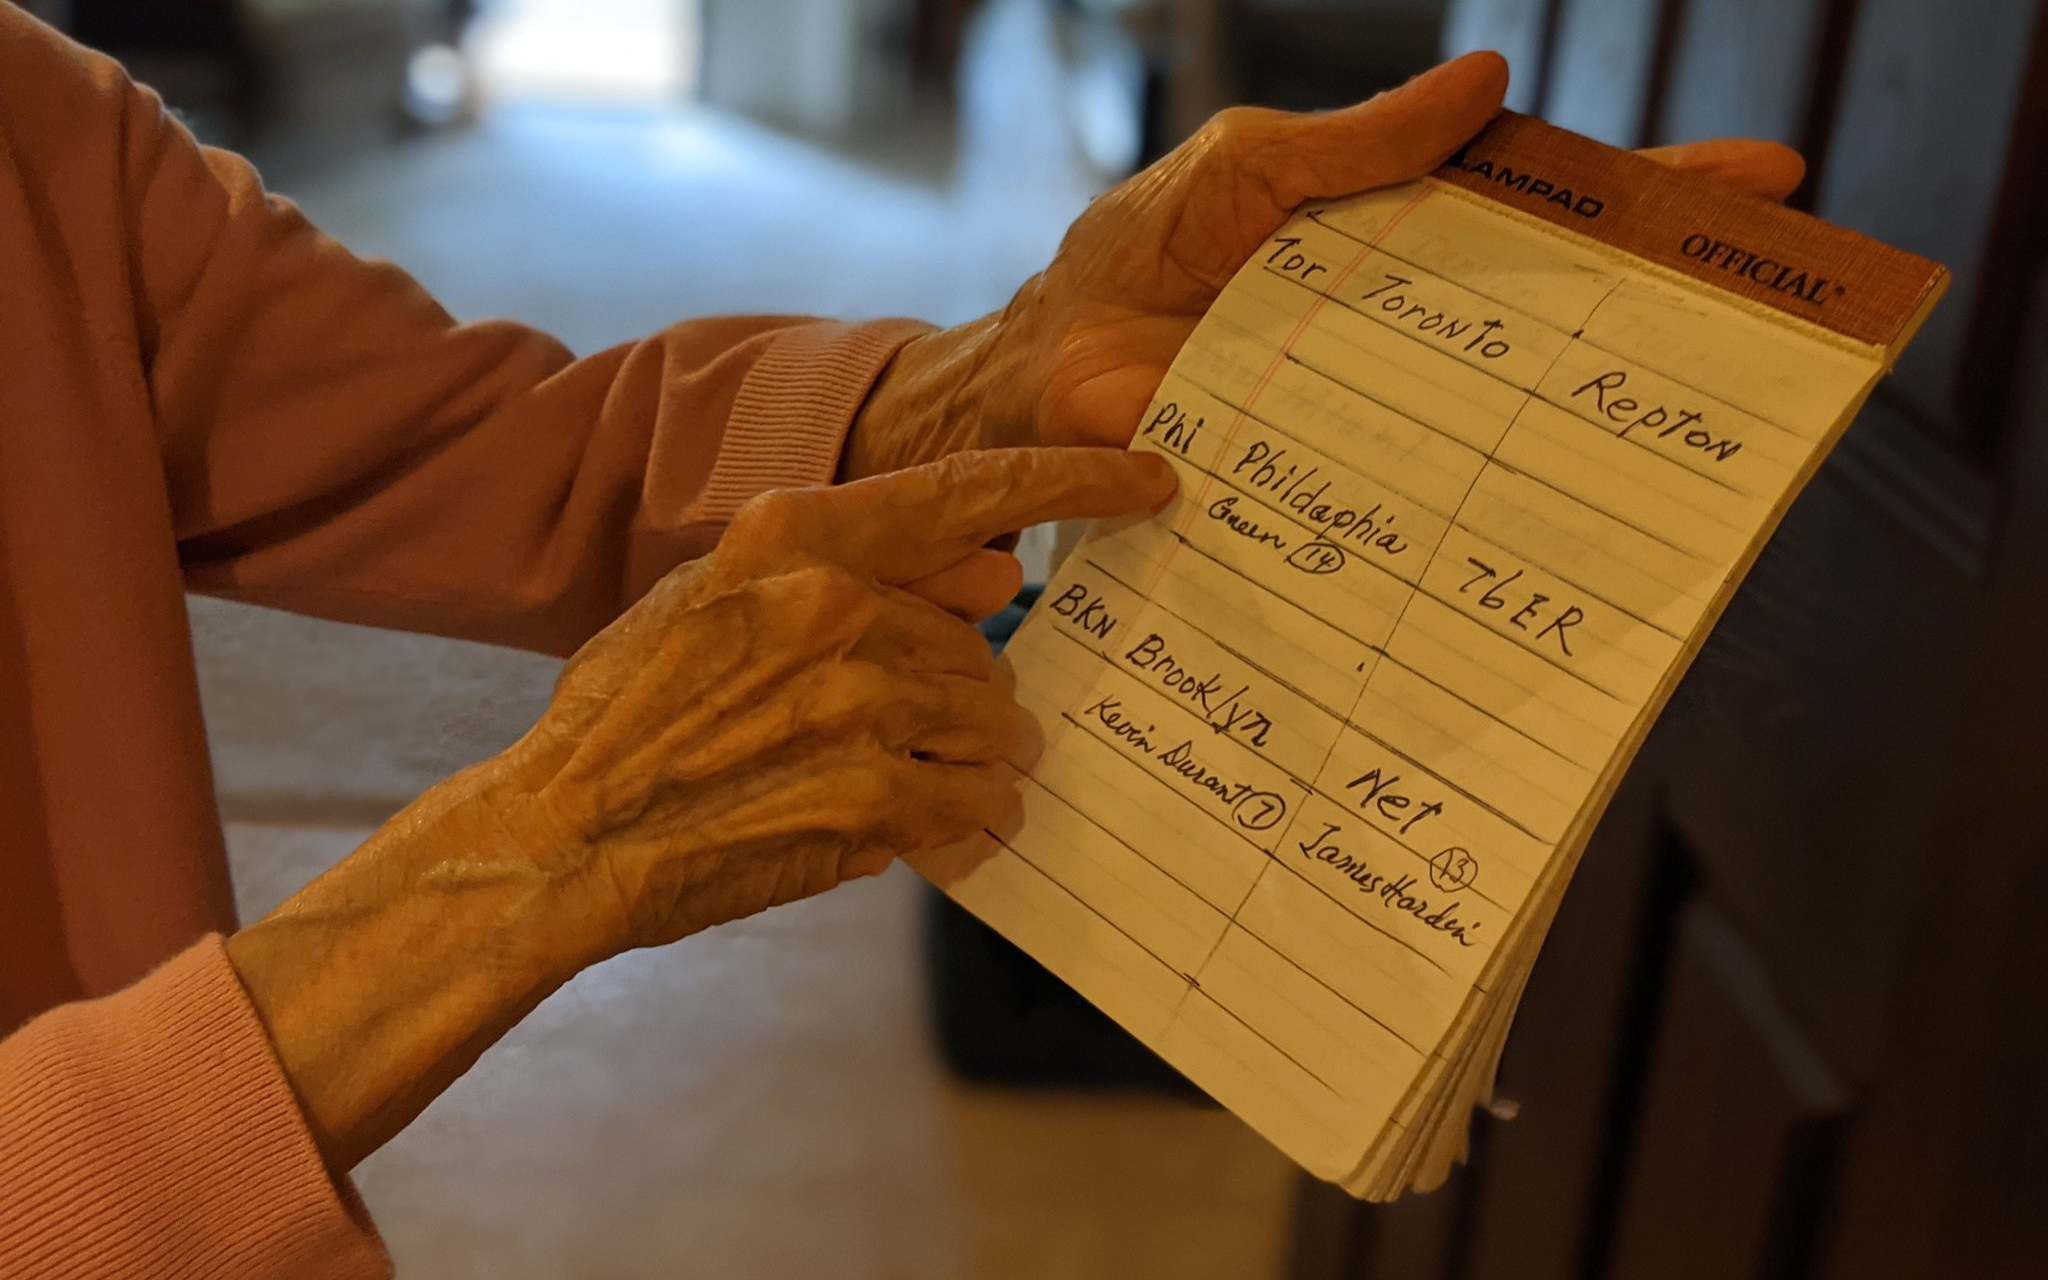 AMPAD
OFFICIAL®
Tor Toronto Repton
Phi Phildaphia 76ER
Green 14
BKN Brooklyn Net
Kevin Durant 7 James Harden 13